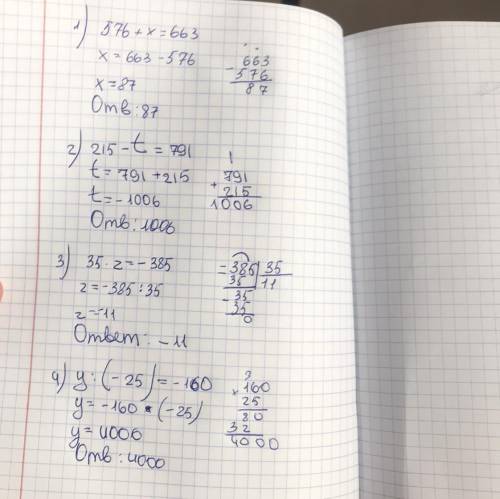 1) 576 + x = 663
x = 663 - 576
x = 87
Отв: 87
- 663
576
87
2) 215 - t = 791
t = 791 + 215
t = - 1006
Отв: 1006
1
+ 791
215
1006
3) 35 · z = - 385
z = - 385 : 35
z = - 11
Ответ: - 11
- 385 35
35 11
- 35
35
0
4) y : (- 25) = - 160
y = - 160 · (- 25)
y = 4000
Отв: 4000
3
× 160
25
80
32
4000